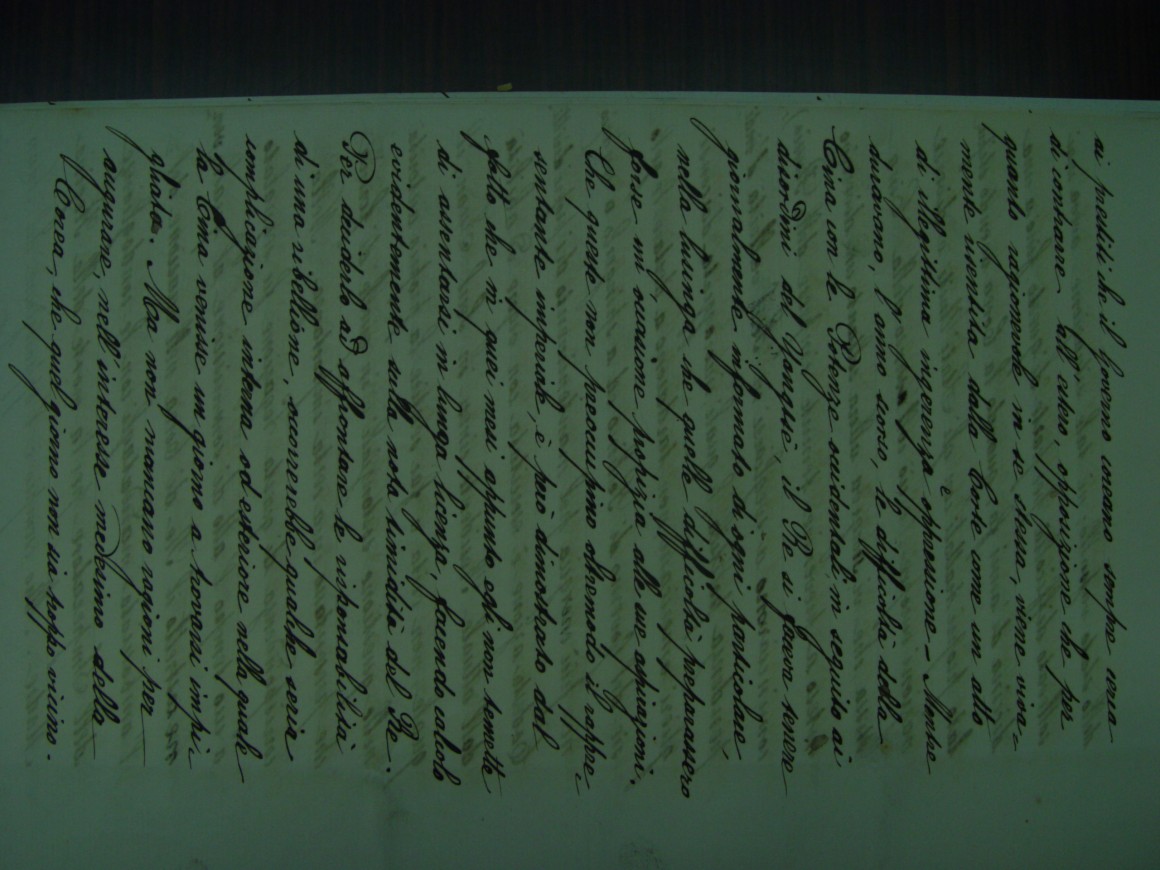 ai prestiti che il Governo coreano sempre cerca
di contrarre all'estero, opposizione che per
quanto ragionevole in se stessa, viene viva-
mente risentita dalla Corte come un atto
di illegittima ingerenza e oppressione - Mentre
duravano, l'anno scorso, le difficoltà della
Cina con le Potenze occidentali in seguito ai
disordini del Yangtsè, il Re si faceva tenere
giornalmente informato d'ogni particolare,
nella lusinga che quelle difficoltà preparassero
forse un'occasione propizia alle sue aspirazioni.
Che queste non preoccupino oltremodo il rappre-
sentante imperiale, è però dimostrato dal
fatto che in quei mesi appunto egli non temette
di assentarsi in lunga licenza, facendo calcolo
evidentemente sulla nota timidità del Re.
Per deciderlo ad affrontare le risponsabilità
di una ribellione, occorrerebbe qualche seria
complicazione interna od esteriore nella quale
la Cina venisse un giorno a trovarsi impi-
gliata. Ma non mancano ragioni per
augurare, nell'interesse medesimo della
Corea, che quel giorno non sia troppo vicino.